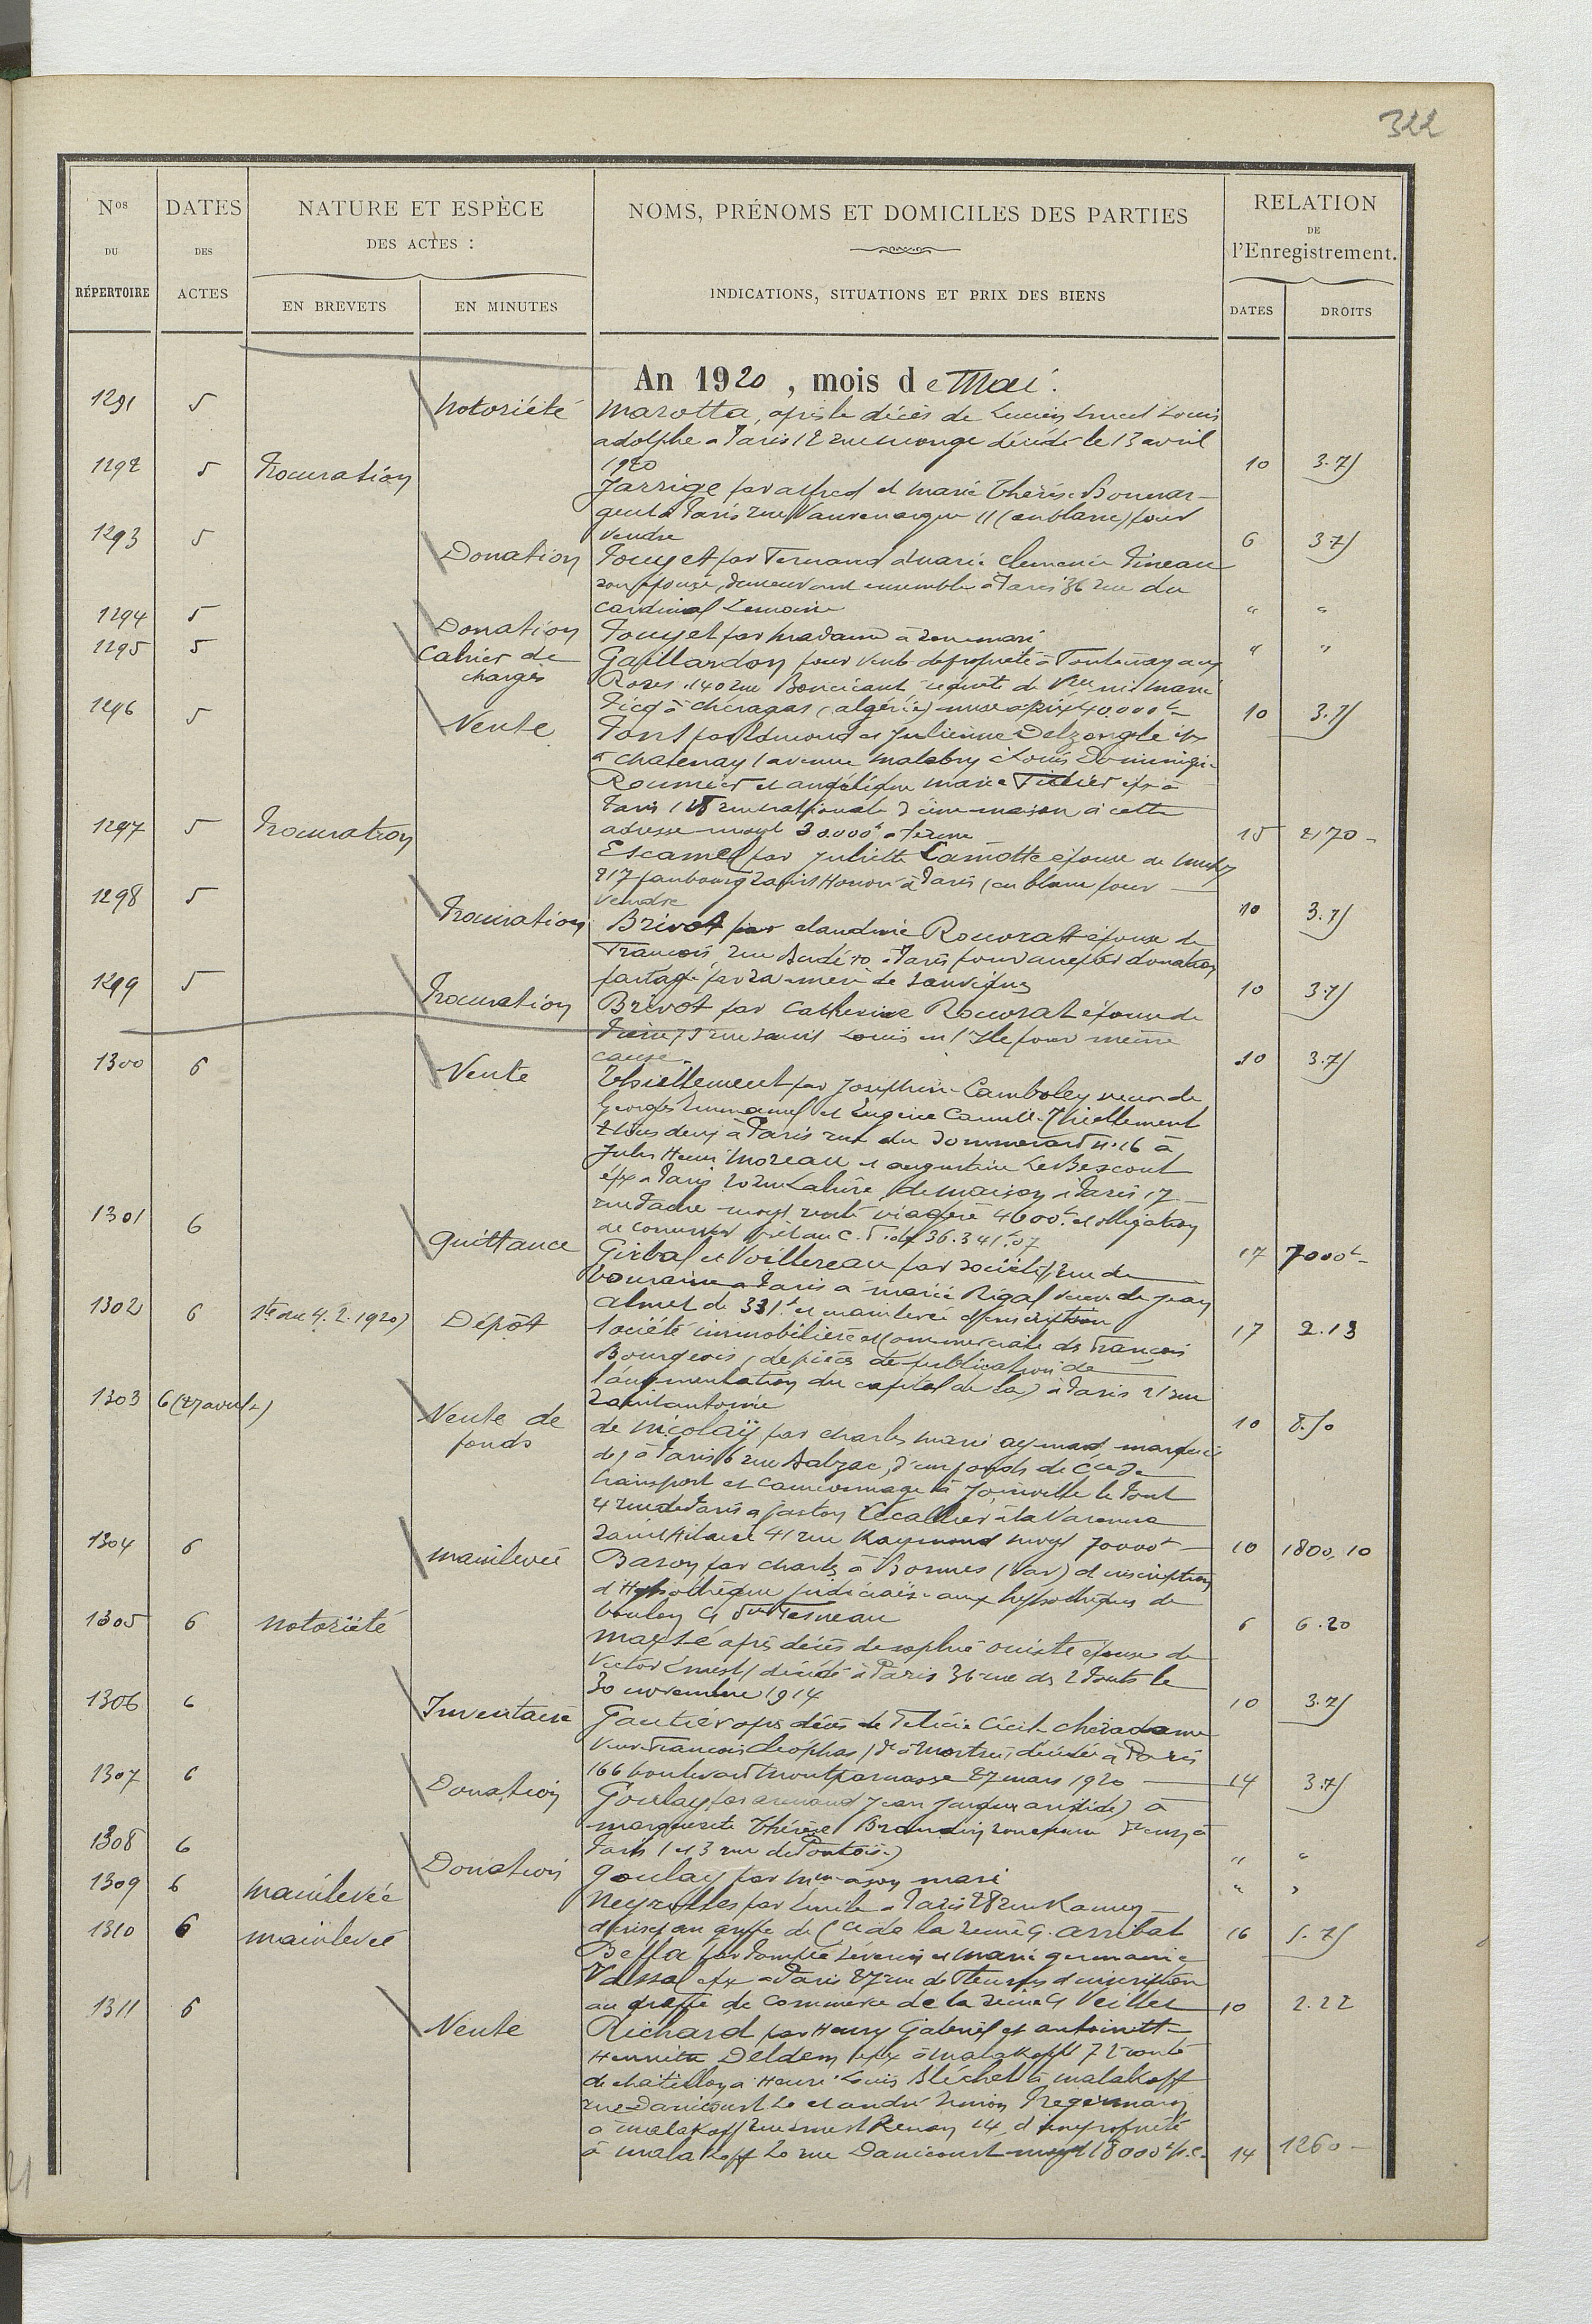 322
Nos DU RÉPERTOIRE
DATES DES ACTES
NATURE ET ESPÈCE DES ACTES :
EN BREVETS
EN MINUTES
NOMS, PRÉNOMS ET DOMICILES DES PARTIES
INDICATIONS, SITUATIONS ET PRIX DES BIENS
RELATION DE l'Enregistrement.
DATES
DROITS
An 1920, mois de Mai.
1291 5 Notoriété Marotta, après le décès de Lucien Louis
adolphe à Paris 12 rue Monge décédé le 13 avril
1920 10 3.75
1292 5 Procuration Jarrige par alfred et marie Thérèse
à Paris rue Vauvenargue 11 (en blanc) pour
vendre 6 3.75
1293 5 Donation Fouyet par Fernand à marie clemence Pineau
son épouse, demeurant ensemble à Paris 36 rue du
Cardinal Lemoine " "
1294 5 Donation Fouyet par madame à son mari " "
1295 5 Cahier de charges Gaillardon pour vente de propriété à Fontenay aux
Roses 140 rue Boucicaut, requête de
Ficq à chéragas (algérie) mise à prix 40.000f 10 3.75
1296 5 Vente Font par Edmond et Julienne Delzongle epx
à chatenay avenue malabry à Louis
Roumier et angélique marie Tillier epx à
Paris rue nationale d'une maison à cette
adresse moyt 30.000f à terme 15 2170 -
1297 5 Procuration Escamel par Juliette Lamotte épouse de
217 faubourg Saint Honoré à Paris (en blanc pour
vendre 10 3.75
1298 5 Procuration Brivot par claudine Rouvrat épouse de
François, rue à Paris pour accepter donation
partage par sa mère de 10 3.75
1299 5 Procuration Brivot par Catherine Rouvrat épouse de
Pierre, rue Saint Louis en l'Ile pour même
cause. 10 3.75
1300 6 Vente Thiellement par Josephine Camboley veuve de
Georges Emmanuel et Eugène Camille Thiellement
tous deux à Paris rue du Sommerard n. 16 à
Jules Henri Moreau et augustine LeBescont
epx à Paris 20 rue Lahire, de maison à Paris 17
rue moyt rente viagère 4600f et obligation
de prêt au C. F. de 36.341f.07 17 7000f -
1301 6 Quittance Girbal et Voillereau par société, rue de
à Paris à marie Rigal veuve de Jean
Almet de 331f et mainlevée d'inscription 17 2.13
1302 6 (du 4.2.1920) Dépôt Société immobilière et commerciale des Francs
Bourgeois, de pièces de publication de
l'augmentation du capital de la) à Paris 21 rue
Saint antoine 10 8.50
1303 6 (27 avril) Vente de fonds de Nicolaÿ par charles marie aymard marquis
de) à Paris 6 rue Balzac, d'un fonds de Cie de
transport et camionnage à Joinville le Pont
4 rue de Paris à gaston Lecallier à la Varenne
Saint Hilaire 41 rue Raymond moyt 70000f 10 1800,10
1304 6 mainlevée Baron par charles à Bormes (Var) d'inscription
d'Hypothèque judiciaire aux hypothèques de
Toulon 6 6.20
1305 6 notoriété après décès de sophie épouse de
Victor Ernest, décédée à Paris 36 rue des 2 Ponts le
30 novembre 1914 10 3.75
1306 6 Inventaire Gautier aps décès de Félicie Cécile chéradame
veuve François Cléophas, dt à Mortrée, décédée à Paris
166 boulevard Montparnasse 27 mars 1920 14 3.75
1307 6 Donation Goulay par armand Jean Jacques aristide) à
marguerite Thérèse son épouse
Paris 1 et 3 rue de Pontoise) " "
1308 6 Donation Goulay par Mme à son mari " "
1309 6 mainlevée Neyrolles par Emile à Paris 28 rue Ramey
d'inscr au greffe de Cce de la seine c. arribat 16 5.75
1310 6 mainlevée Beffa par Pompée Séverin et marie germaine
Vassal epx à Paris 27 rue de Fleurus d'inscription
au greffe de commerce de la seine c. Veillet 10 2.22
1311 6 Vente Richard par Henry Gabriel et antoinette
Henriette Deldem epx à malakoff 72 route
de chatillon à Henri Louis Bléchet à malakoff
rue Danicourt 20 et andré Simon
à malakoff rue Ernest Renan 14, d'une propriété
à malakoff 20 rue Danicourt moyt 18000f p.c. 14 1260 -
21